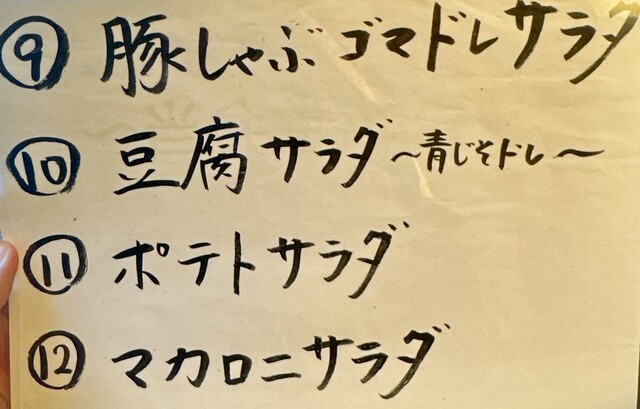 ⑨ 豚しゃぶゴマドレサラダ
⑩ 豆腐サラダ ～青じそドレ～
⑪ ポテトサラダ
⑫ マカロニサラダ